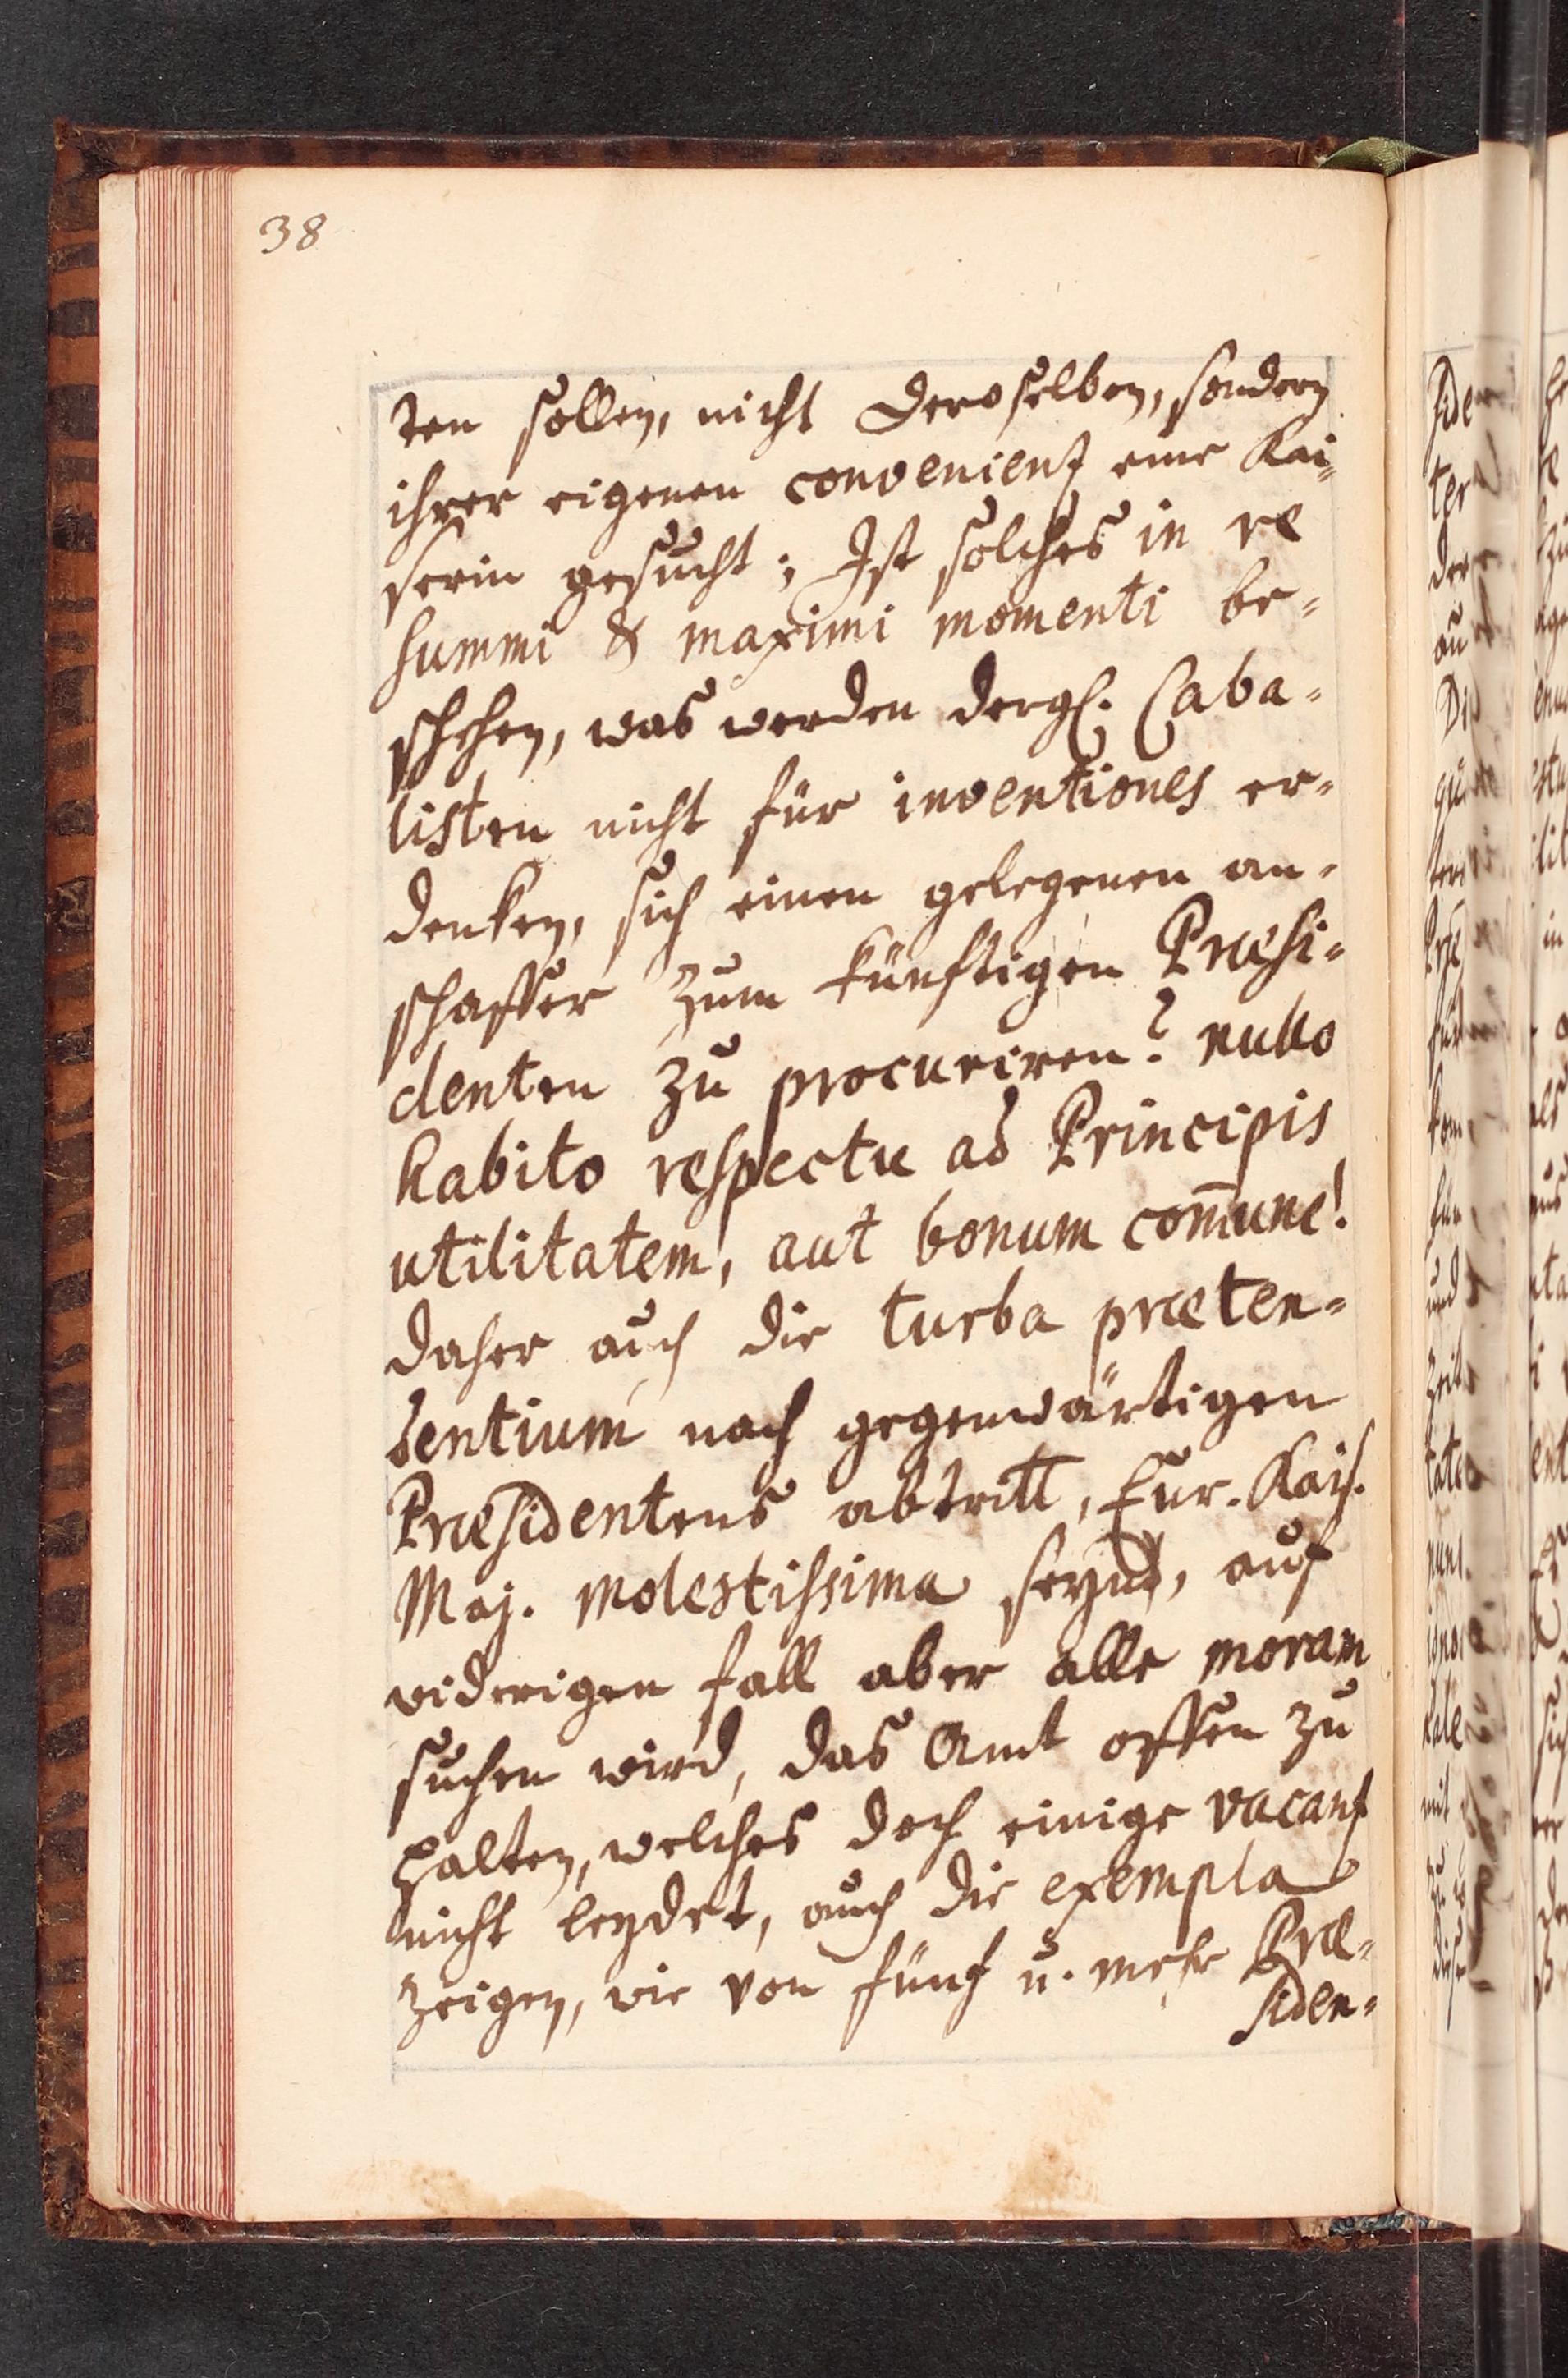 38
ten sollen, nicht Deroselben, sondern
ihrer eigenen convenienz eine Kai-
serin gesucht; Ist solches in re
summi & maximi momenti be-
schehen, was werden dergl. Caba-
listen nicht für inventiones er-
denken, sich einen gelegenen an-
schaffer zum künftigen Præsi-
denten zu procuriren? nullo
habito respectu ad Principis
utilitatem, aut bonum com̄une!
daher auch die turba præten-
dentium nach gegenwärtigen
Præsidentens abtritt, Eur. Kais.
Maj. molestissima seyn, auf
widerigen fall aber alle moram
suchen wird, das Amt offen zu
halten, welches doch einige vacanz
nicht leydet, auch die exempla
zeigen, wie von fünf u. mehr Præ-
siden-